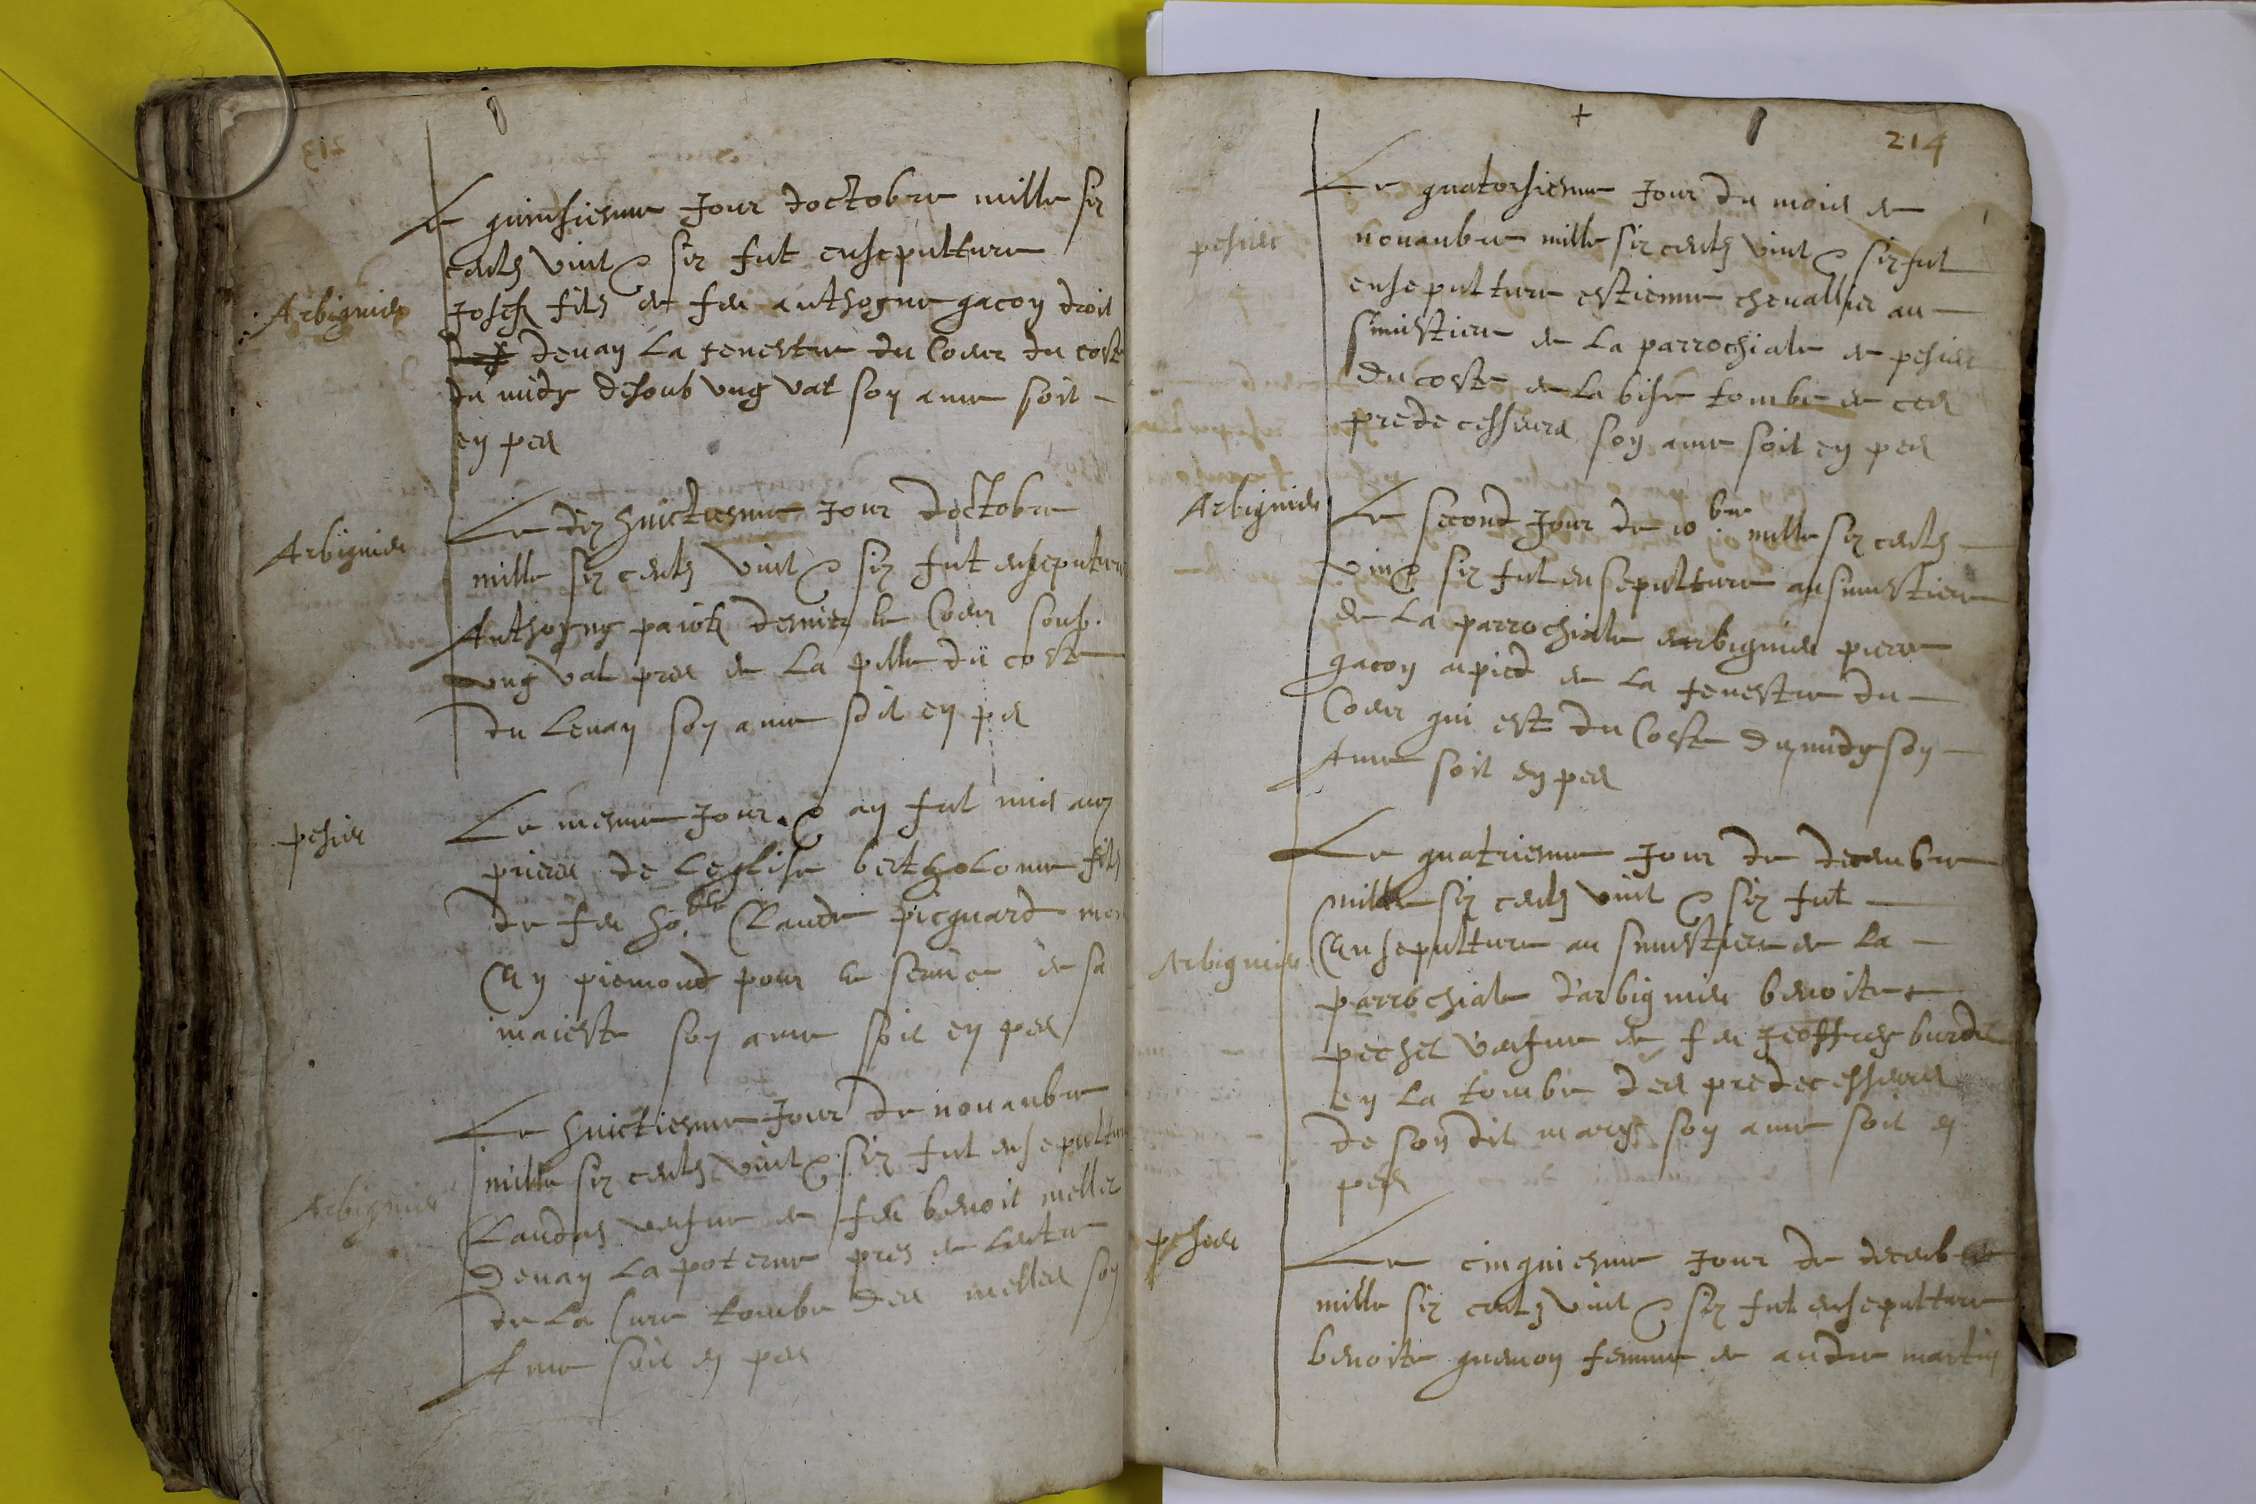 Arbignieu
Le quinsiesme Jour doctobre mille six
centz vint & six fut ensepulture
Joseph filz de feu anthoyne gacon droit
devan La fenestre du Coeur du coste
du midy desoub ung vat son ame soit
en pes
Arbignieu
Le dix huictiesme Jour doctobre
mille six centz vint & six fut ensepulture
Anthoyne dernier le Coeur soub
ung vat pres de La pille du coste
du levan son ame soit en pes
pesieu
Le mesme Jour & an fut mis aux
prieres de Leglise bertholome filz
de feu ho.ble Claude picquard mor
En piemond pour le service de sa
maieste son ame soit en pes
Arbignieu
Le huictiesme Jour de novanbre
mille six centz vint & six fut ensepulture
Claudaz veufve de feu benoit mellet
devan La poterne pres de Lentre
de La Cure tombe des melles son
Ame soit en pes
214
pesieu
Le quatorsiesme Jour du mois de
novanbre mille six centz vint & six fut
ensepulture estienne chevallier au
simistiere de La parrochiale de pesieu
du coste de La bise tombe de ces
predecesseurs son ame soit en pes
Arbignieu
Le second Jour de 10 bre mille six centz
vin & six fut ensepulture au simistiere
de La parrochiale darbignieu pierre
gacon aupied de La fenestre du
Coeur qui est du Coste du midy son
Ame soit en pes
Arbignieu
Le quatriesme Jour de decenbre
mille six centz vint & six fut
Ensepulture au simistiere de La
parrochiale d'arbignieu benoite
pechet veufve de feu Jeoffrey burdet
en La tombe des predecesseurs
de son dit mary son ame soit en
pes
pesieu
Le cinquiesme Jour de decenbre
mille six centz vint & six fut ensepulture
benoite guenon femme de andre martin